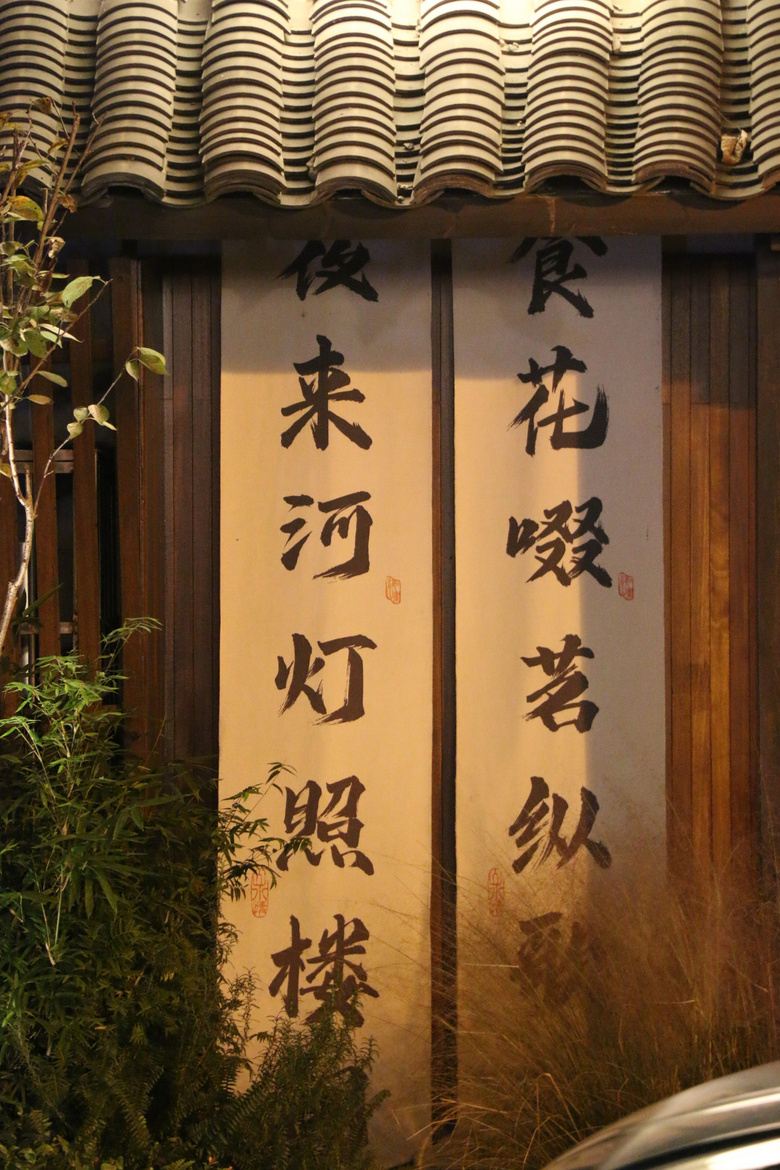 花啜茗纵
夜来河灯照楼